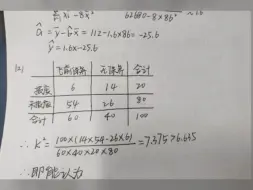 62680-8×86²
â = ȳ - b̂x̄ = 112-1.6×86 = -25.6
ŷ = 1.6x-25.6
(2)
无保养 合计
6 14 20
54 26 80
合计 60 40 100
∴ K² = 100×(14×54-26×6)² / 60×40×20×80 = 7.375 > 6.635
∴ 即能认为